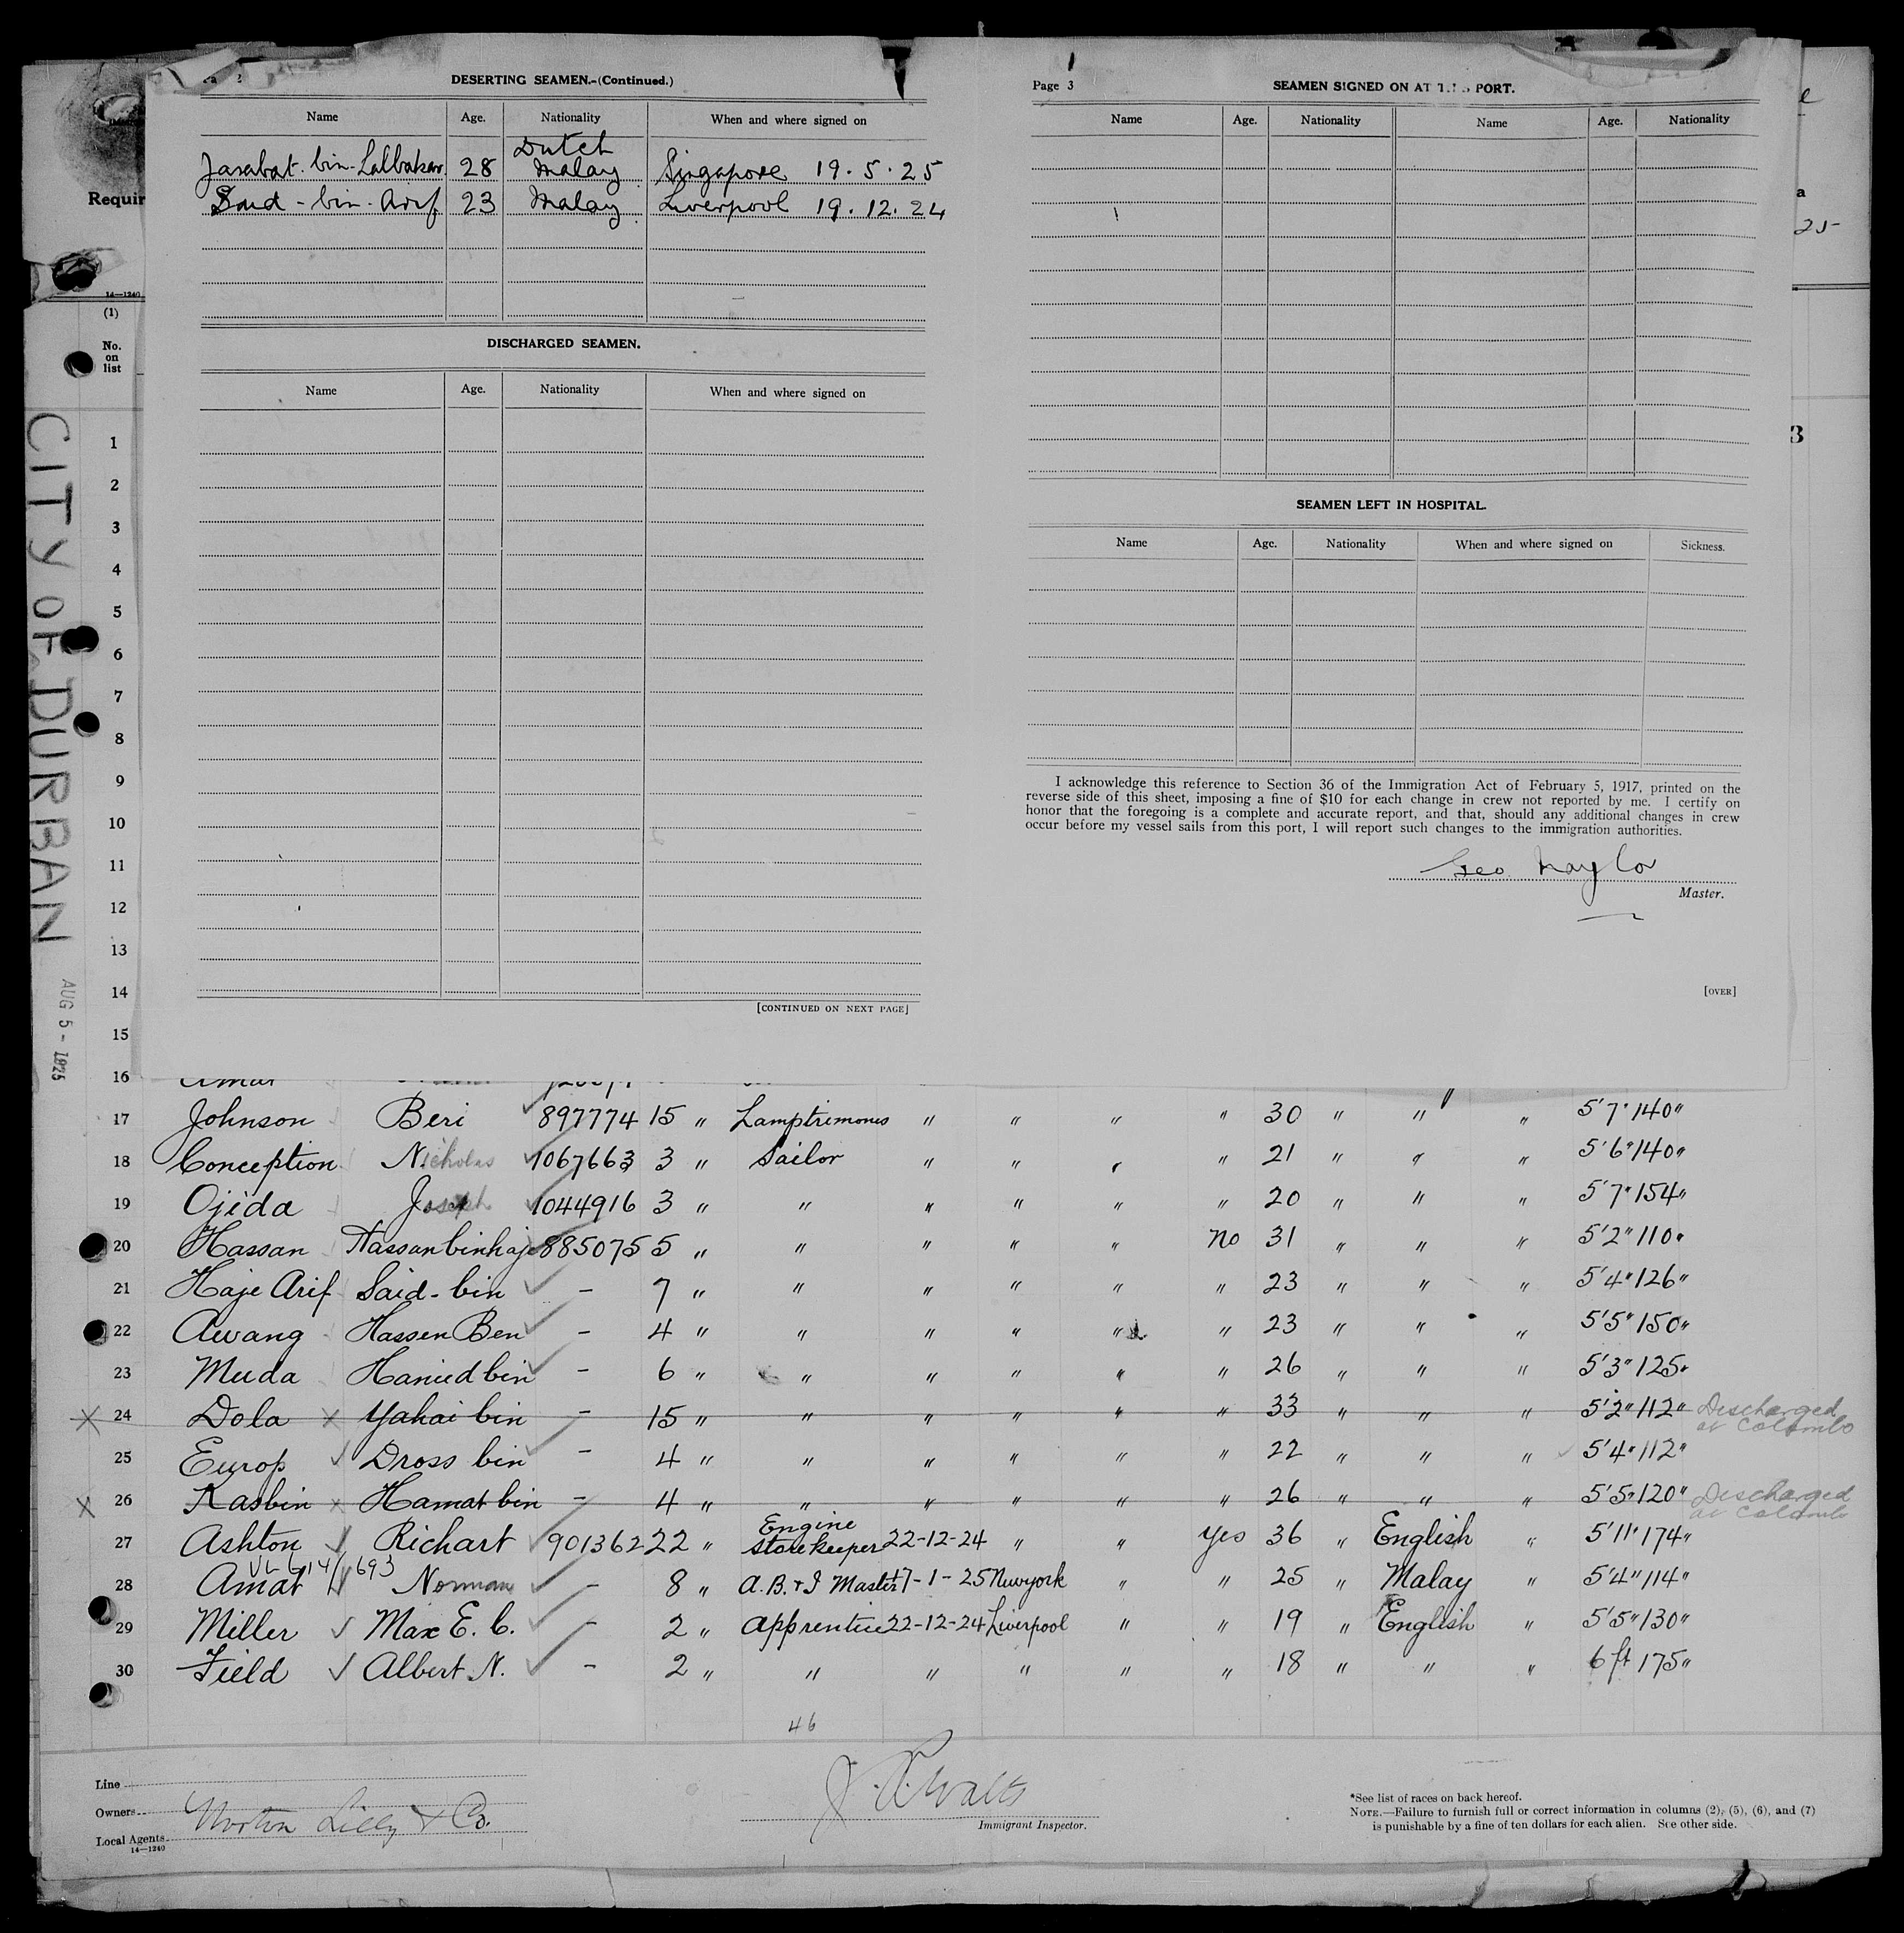 DESERTING SEAMEN.-(Continued.)
Name Age. Nationality When and where signed on
Dutch
Jarabat. bin- 28 Malay Singapore 19.5.25
Said - bin - Arif 23 Malay Liverpool 19.12.24
DISCHARGED SEAMEN.
Name Age. Nationality When and where signed on
[CONTINUED ON NEXT PAGE]
1
Page 3 SEAMEN SIGNED ON AT PORT.
Name Age. Nationality Name Age. Nationality
SEAMEN LEFT IN HOSPITAL.
Name Age. Nationality When and where signed on Sickness.
I acknowledge this reference to Section 36 of the Immigration Act of February 5, 1917, printed on the
reverse side of this sheet, imposing a fine of $10 for each change in crew not reported by me. I certify on
honor that the foregoing is a complete and accurate report, and that, should any additional changes in crew
occur before my vessel sails from this port, I will report such changes to the immigration authorities.
Geo Naylor
Master.
[OVER]
Requir
a
25
14—1240
(1)
No.
on
list
3
CITY OF DURBAN
AUG 5 - 1925
1
2
3
4
5
6
7
8
9
10
11
12
13
14
15
16 Amat
17 Johnson Beri 897774 15 " Lamptrimones " " " " 30 " " " 5'7" 140"
18 Conception Nicholas 1067663 3 " Sailor " " " " 21 " " " 5'6" 140"
19 Ojida Joseph 1044916 3 " " " " " " 20 " " " 5'7" 154"
20 Hassan Hassanbinhaje 885075 5 " " " " " No 31 " " " 5'2" 110"
21 Haje Arif Said - bin - 7 " " " " " " 23 " " " 5'4" 126"
22 Awang Hassen Ben - 4 " " " " " " 23 " " " 5'5" 150"
23 Muda Hamid bin - 6 " " " " " " 26 " " " 5'3" 125"
X 24 Dola x Yahai bin - 15 " " " " " " 33 " " " 5'2" 112" Discharged
at Colombo
25 Europ Dross bin - 4 " " " " " " 22 " " " 5'4" 112"
X 26 Kasbin x Hamat bin - 4 " " " " " " 26 " " " 5'5" 120" Discharged
at Colombo
27 Ashton Richart 901362 22 " Engine Storekeeper 22-12-24 " " Yes 36 " English " 5'11" 174"
28 Amat Norman - 8 " A.B. + I Master 17-1-25 Newyork " " 25 " Malay " 5'4" 114"
29 Miller Max E. C. - 2 " Apprentice 22-12-24 Liverpool " " 19 " English " 5'5" 130"
30 Field Albert N. - 2 " " " " " " 18 " " " 6 ft 175"
46
Line
Owners
Norton Lilly & Co.
Local Agents
14—1240
Immigrant Inspector.
*See list of races on back hereof.
NOTE.—Failure to furnish full or correct information in columns (2), (5), (6), and (7)
is punishable by a fine of ten dollars for each alien. See other side.